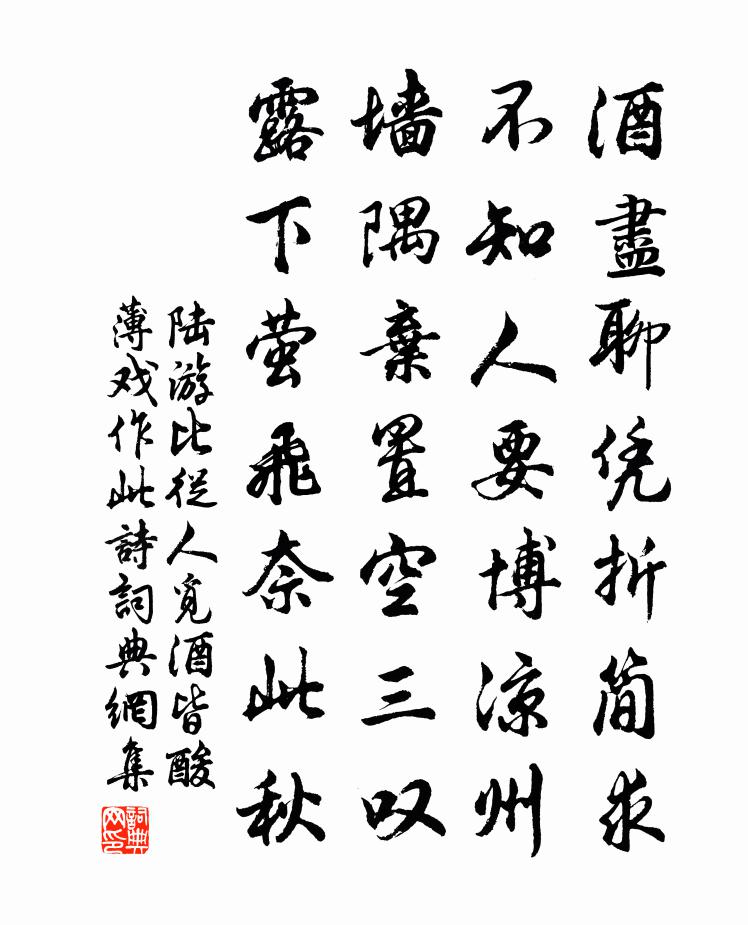 酒盡聊凭折简求
不知人要博凉州
墙隅棄置空三叹
露下萤飛奈此秋
陆游比從人覓酒皆酸
薄戏作此詩詞典網集
詞典网印